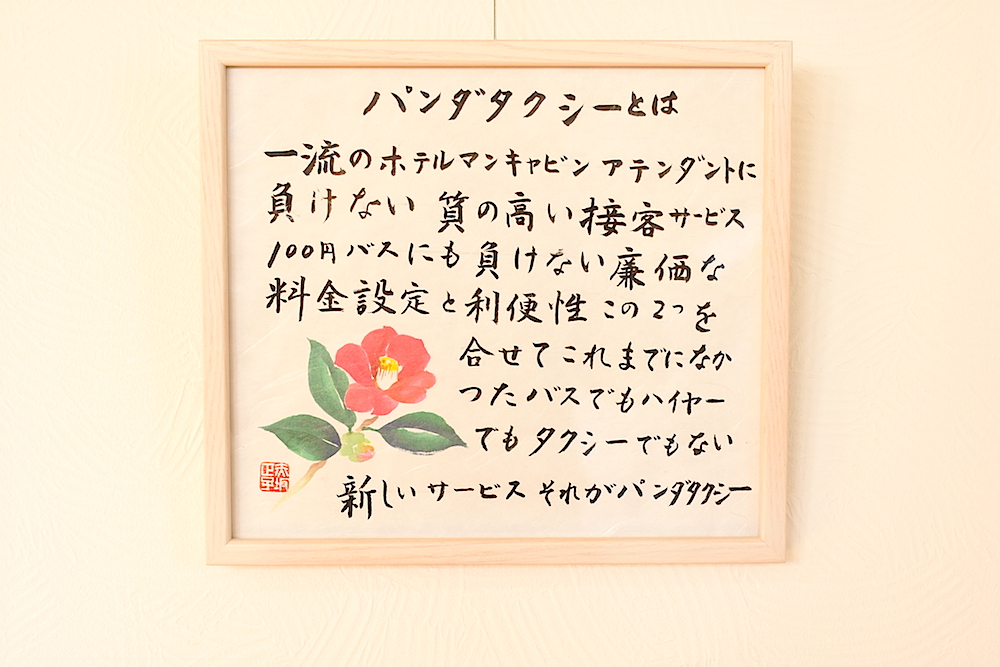 パンダタクシーとは
一流のホテルマンキャビンアテンダントに
負けない質の高い接客サービス
100円バスにも負けない廉価な
料金設定と利便性この2つを
合せてこれまでになか
つたバスでもハイヤー
でもタクシーでもない
新しいサービスそれがパンダタクシー